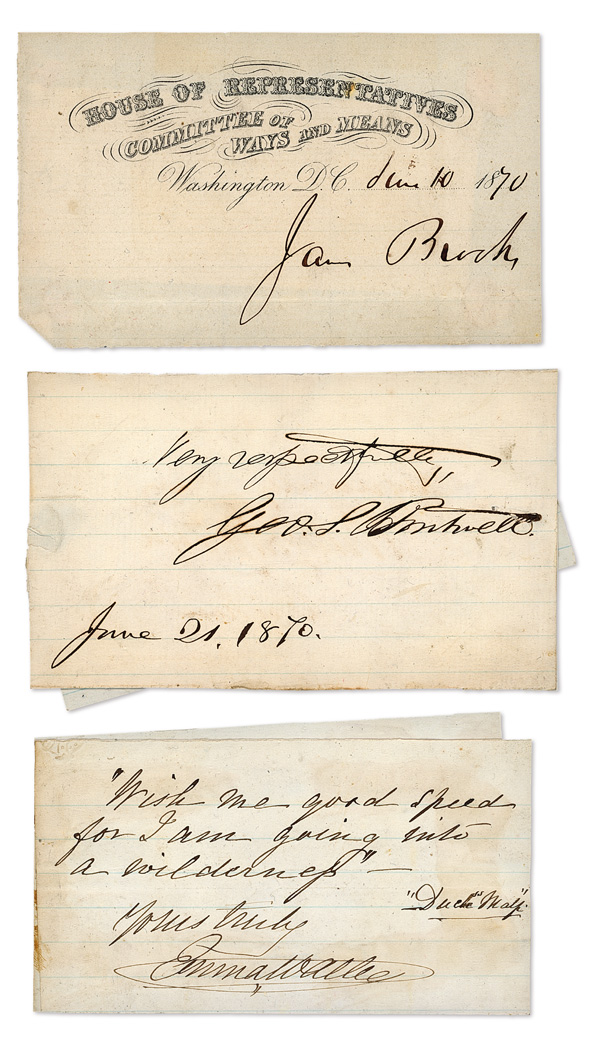 HOUSE OF REPRESENTATIVES
COMMITTEE OF
WAYS AND MEANS
Washington D.C. June 10 1870
Jam Brooks
Very respectfully,
Geo. S. Boutwell.
June 21, 1870.
"Wish me good speed
for I am going into
a wilderness" —
"Duch" Malf".
Yours truly
Emma Waller